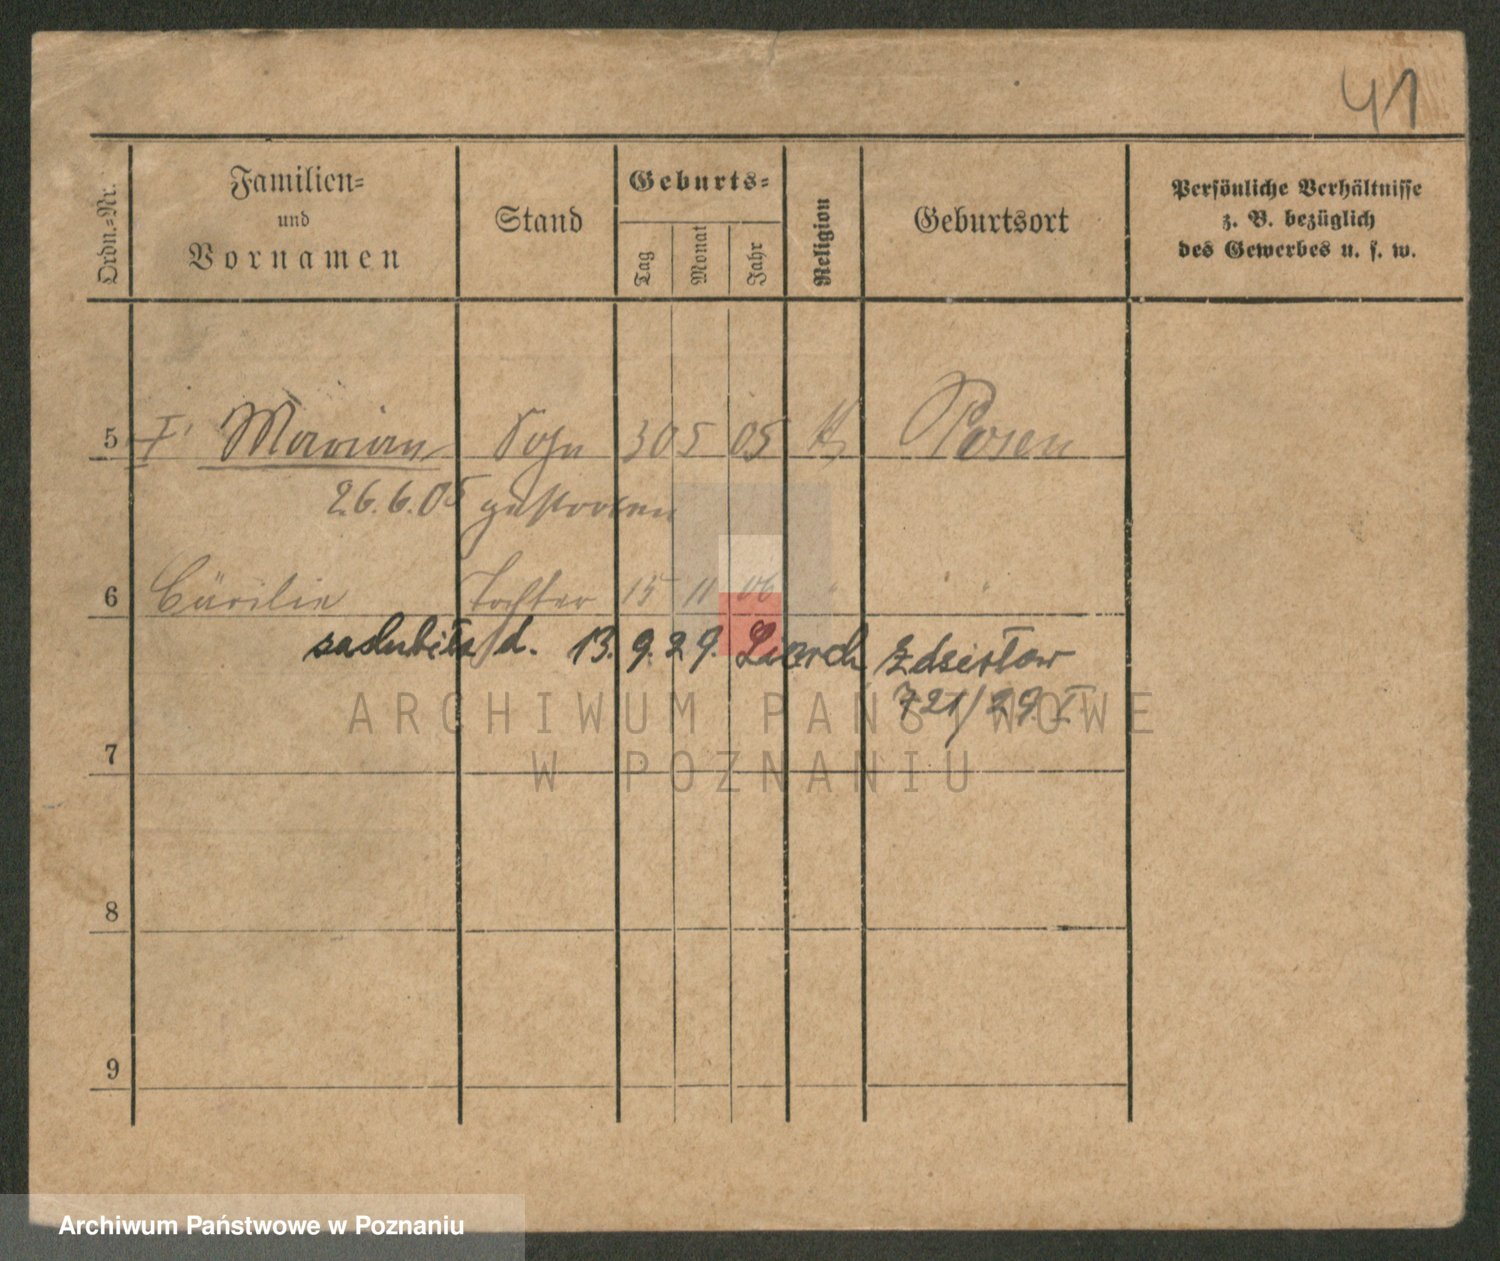 41
Ordn.-Nr.
Familien-
und
Vornamen
Stand
Geburts-
Tag
Monat
Jahr
Religion
Geburtsort
Persönliche Verhältnisse
z. B. bezüglich
des Gewerbes u. s. w.
5 Marian Sohn 30 5 05 K Posen
26.6.05 gestorben
6 Cäcilie Tochter 15 11 06 " "
zaślubiła d. 13. 9. 29. Zdzisław
721/29 I
ARCHIWUM PAŃSTWOWE
W POZNANIU
7
8
9
Archiwum Państwowe w Poznaniu